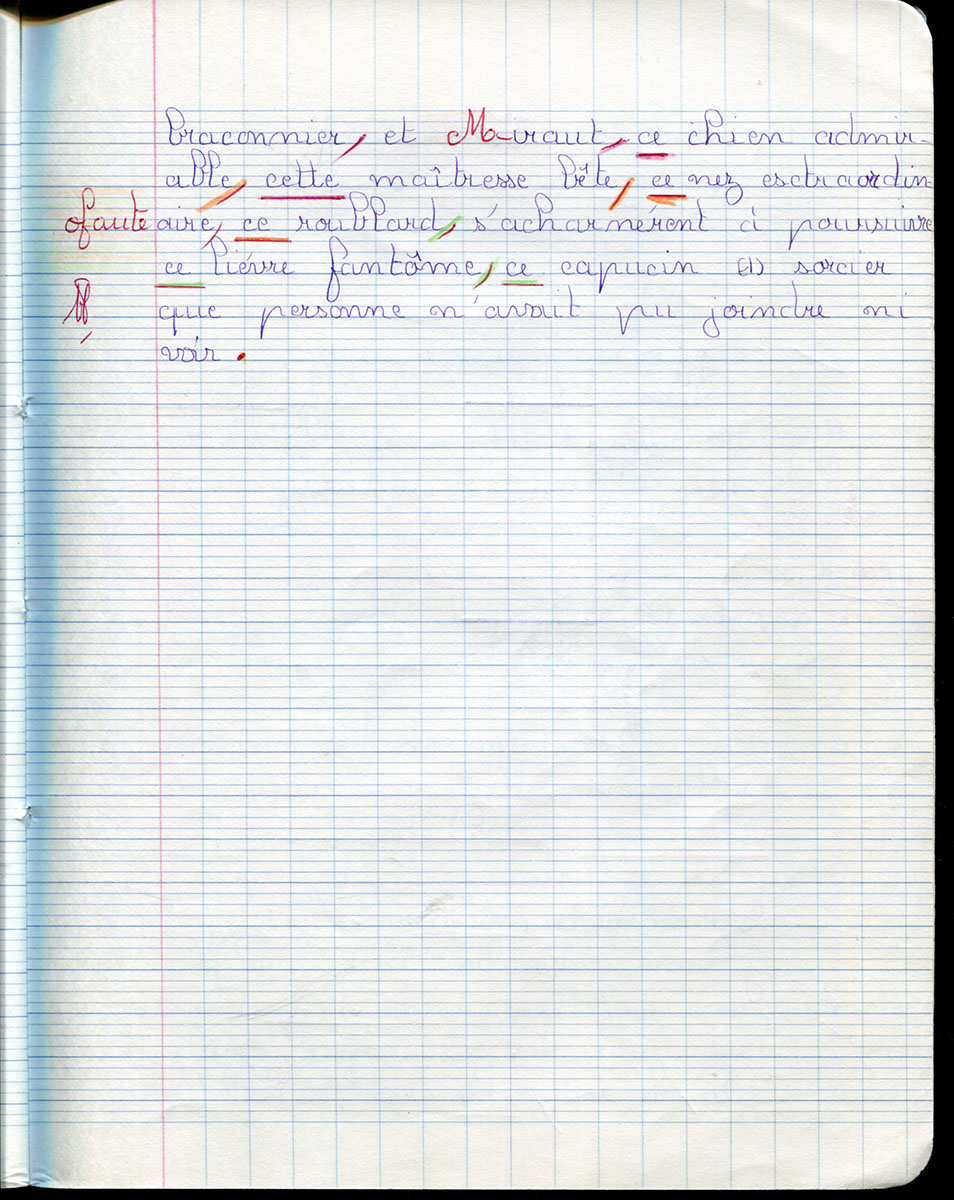 braconnier, et Miraut, ce chien admir-
able, cette maîtresse bête, ce nez esctraordin-
0 faute aire, ce roublard, s'acharnérent à poursuivre
ce liévre fantôme, ce capucin (1) sorcier
que personne n'avait pu joindre ni
voir.